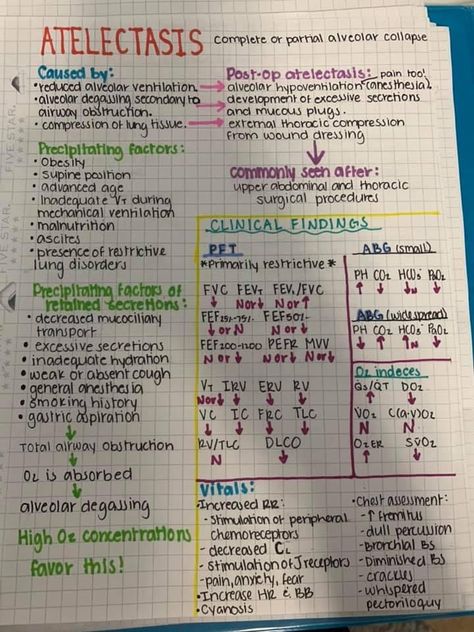 ATELECTASIS complete or partial alveolar collapse
Caused by:
•reduced alveolar ventilation.
•alveolar degassing secondary to
airway obstruction.
•compression of lung tissue.
Post-op atelectasis: pain too!
alveolar hypoventilation (anesthesia).
development of excessive secretions
and mucous plugs.
external thoracic compression
from wound dressing
↓
commonly seen after:
upper abdominal and thoracic
surgical procedures
Precipitating factors:
•Obesity
•Supine position
•advanced age
•Inadequate VT during
mechanical ventilation
•malnutrition
•ascites
•presence of restrictive
lung disorders
Precipitating factors of
retained secretions:
•decreased mucociliary
transport
•excessive secretions
•inadequate hydration
•weak or absent cough
•general anesthesia
•smoking history
•gastric aspiration
↓
Total airway obstruction
↓
O2 is absorbed
↓
alveolar degassing
High O2 concentrations
favor this!
CLINICAL FINDINGS
PFT
*Primarily restrictive*
FVC FEVT FEV1/FVC
↓ N or ↓ N or ↑
FEF25%-75% FEF50%
↓ or N N or ↓
FEF200-1200 PEFR MVV
N or ↓ N or ↓ N or ↓
VT IRV ERV RV
N or ↓ ↓ ↓ ↓
VC IC FRC TLC
↓ ↓ ↓ ↓
RV/TLC DLCO
N ↓
ABG (small)
PH CO2 HCO3 PaO2
↑ ↓ ↓N ↓
ABG (widespread)
PH CO2 HCO3 PaO2
↓ ↑ ↑N ↓
O2 indeces
Qs/QT DO2
↑ ↓
VO2 C(a-v)O2
N N
O2ER SVO2
↑ ↓
Vitals:
•Increased RR:
-stimulation of peripheral
chemoreceptors
-decreased CL
-stimulation of J receptors
-pain, anxiety, fear
•Increase HR & BP
•Cyanosis
•Chest assessment:
-↑ fremitus
-dull percussion
-Bronchial BS
-Diminished BS
-crackles
-whispered
pectoriloquy
FIVE STAR.
FIVE STAR.